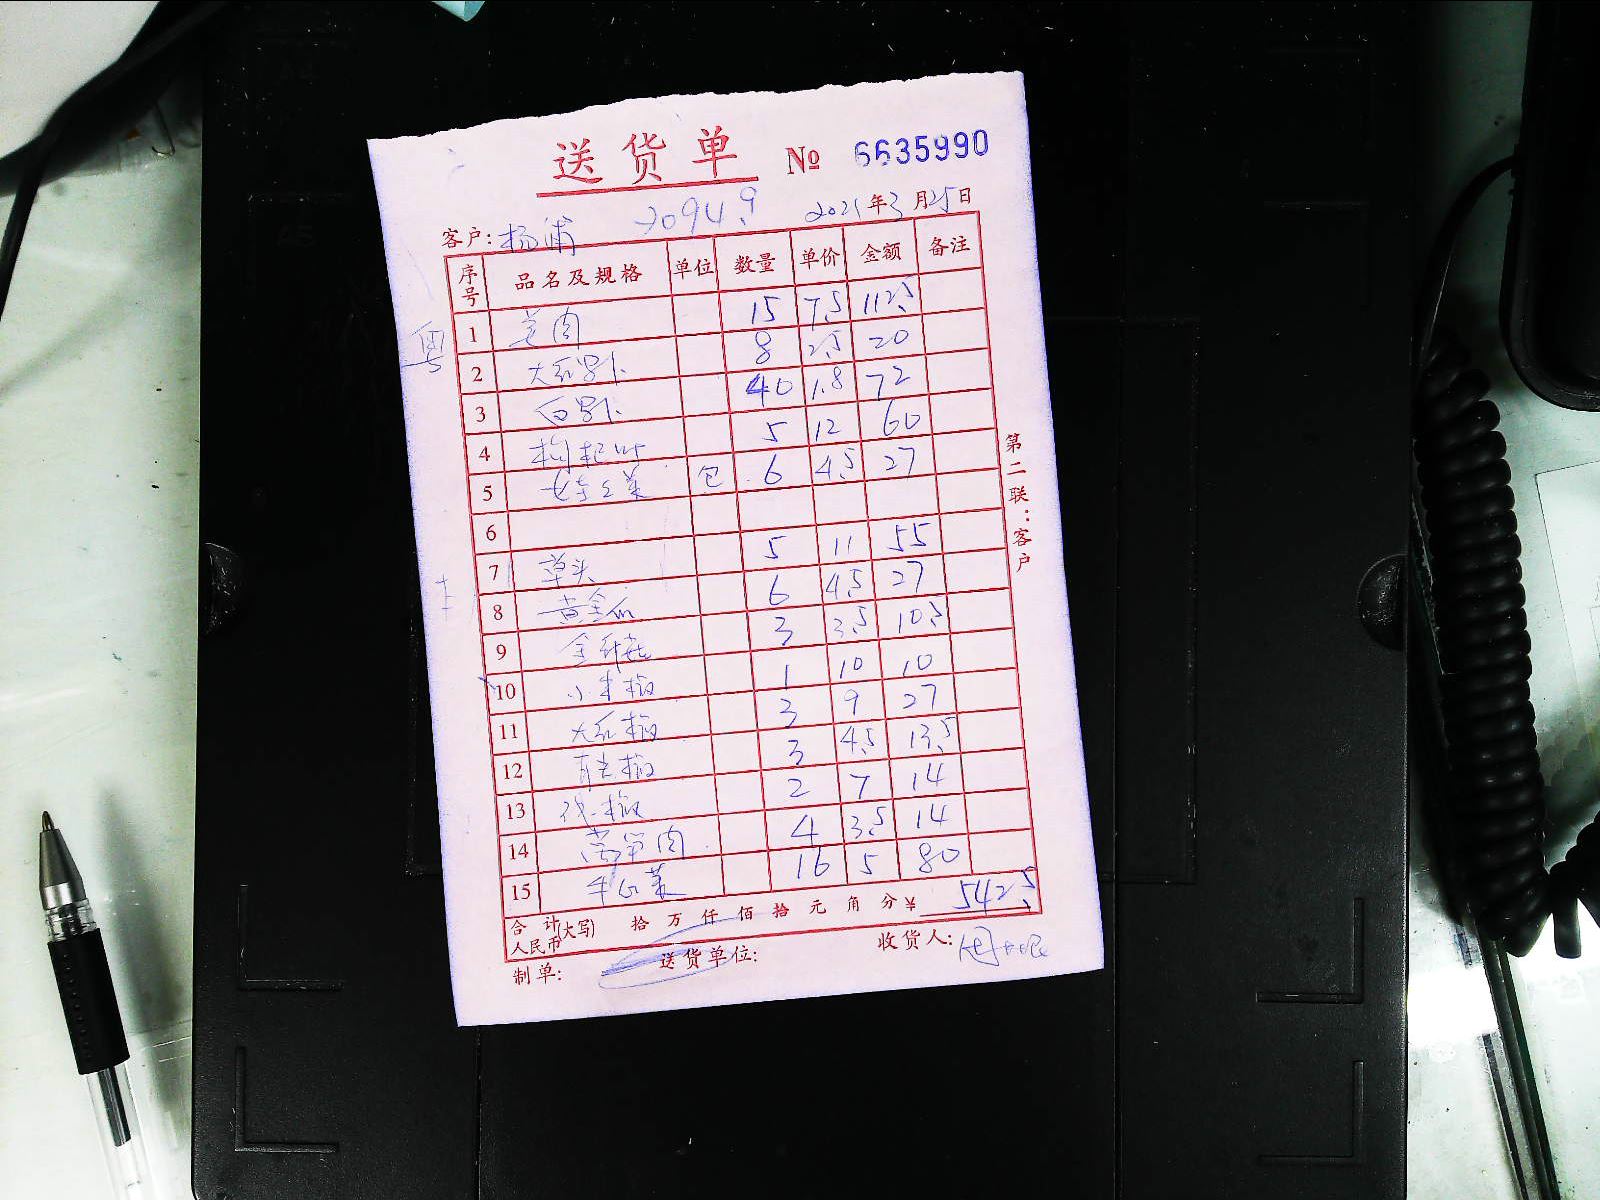 送货单 № 6635990
客户: 杨浦 20949 2021年3月25日
序号 品名及规格 单位 数量 单价 金额 备注
粤
1 羊肉 15 7.5 112.5
2 大红萝卜 8 2.5 20
3 白萝卜 40 1.8 72
4 枸杞叶 5 12 60
5 包 6 4.5 27
6
7 草头 5 11 55
8 黄金瓜 6 4.5 27
9 金针菇 3 3.5 10.5
10 小米椒 1 10 10
11 大红椒 3 9 27
12 青尖椒 3 4.5 13.5
13 线椒 2 7 14
14 莴笋肉 4 3.5 14
15 生菜 16 5 80
合计人民币(大写) 拾 万 仟 佰 拾 元 角 分 ¥ 542.5
制单: 送货单位: 收货人:
第二联:客户